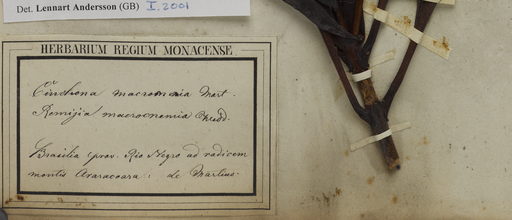 Det. Lennart Andersson (GB) I.2001
HERBARIUM REGIUM MONACENSE
Cinchona macrocnemia Mart.
Remijia macrocnemia Wedd.
Brasilia prov. Rio Negro ad radicem
montis Araracoara: de Martius.